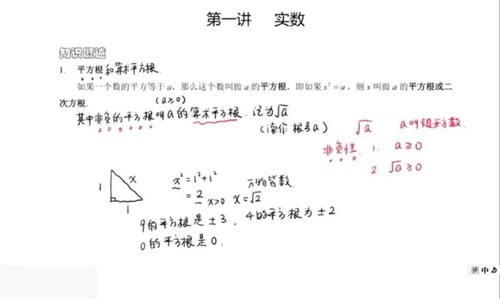 第一讲 实数
知识概述
1. 平方根和算术平方根.
如果一个数的平方等于 a，那么这个数叫做 a 的平方根，即如果 x² = a，则 x 叫做 a 的平方根或二
次方根. (a≥0)
其中非负的平方根叫a的算术平方根. 记为√a
(读作 根号a)
√a a叫被开方数.
非负性: 1. a≥0
2. √a≥0
1 x 1
x² = 1² + 1²
= 2 x>0 x = √2
9的平方根是 ±3, 4的平方根为 ±2
0的平方根是0.
中